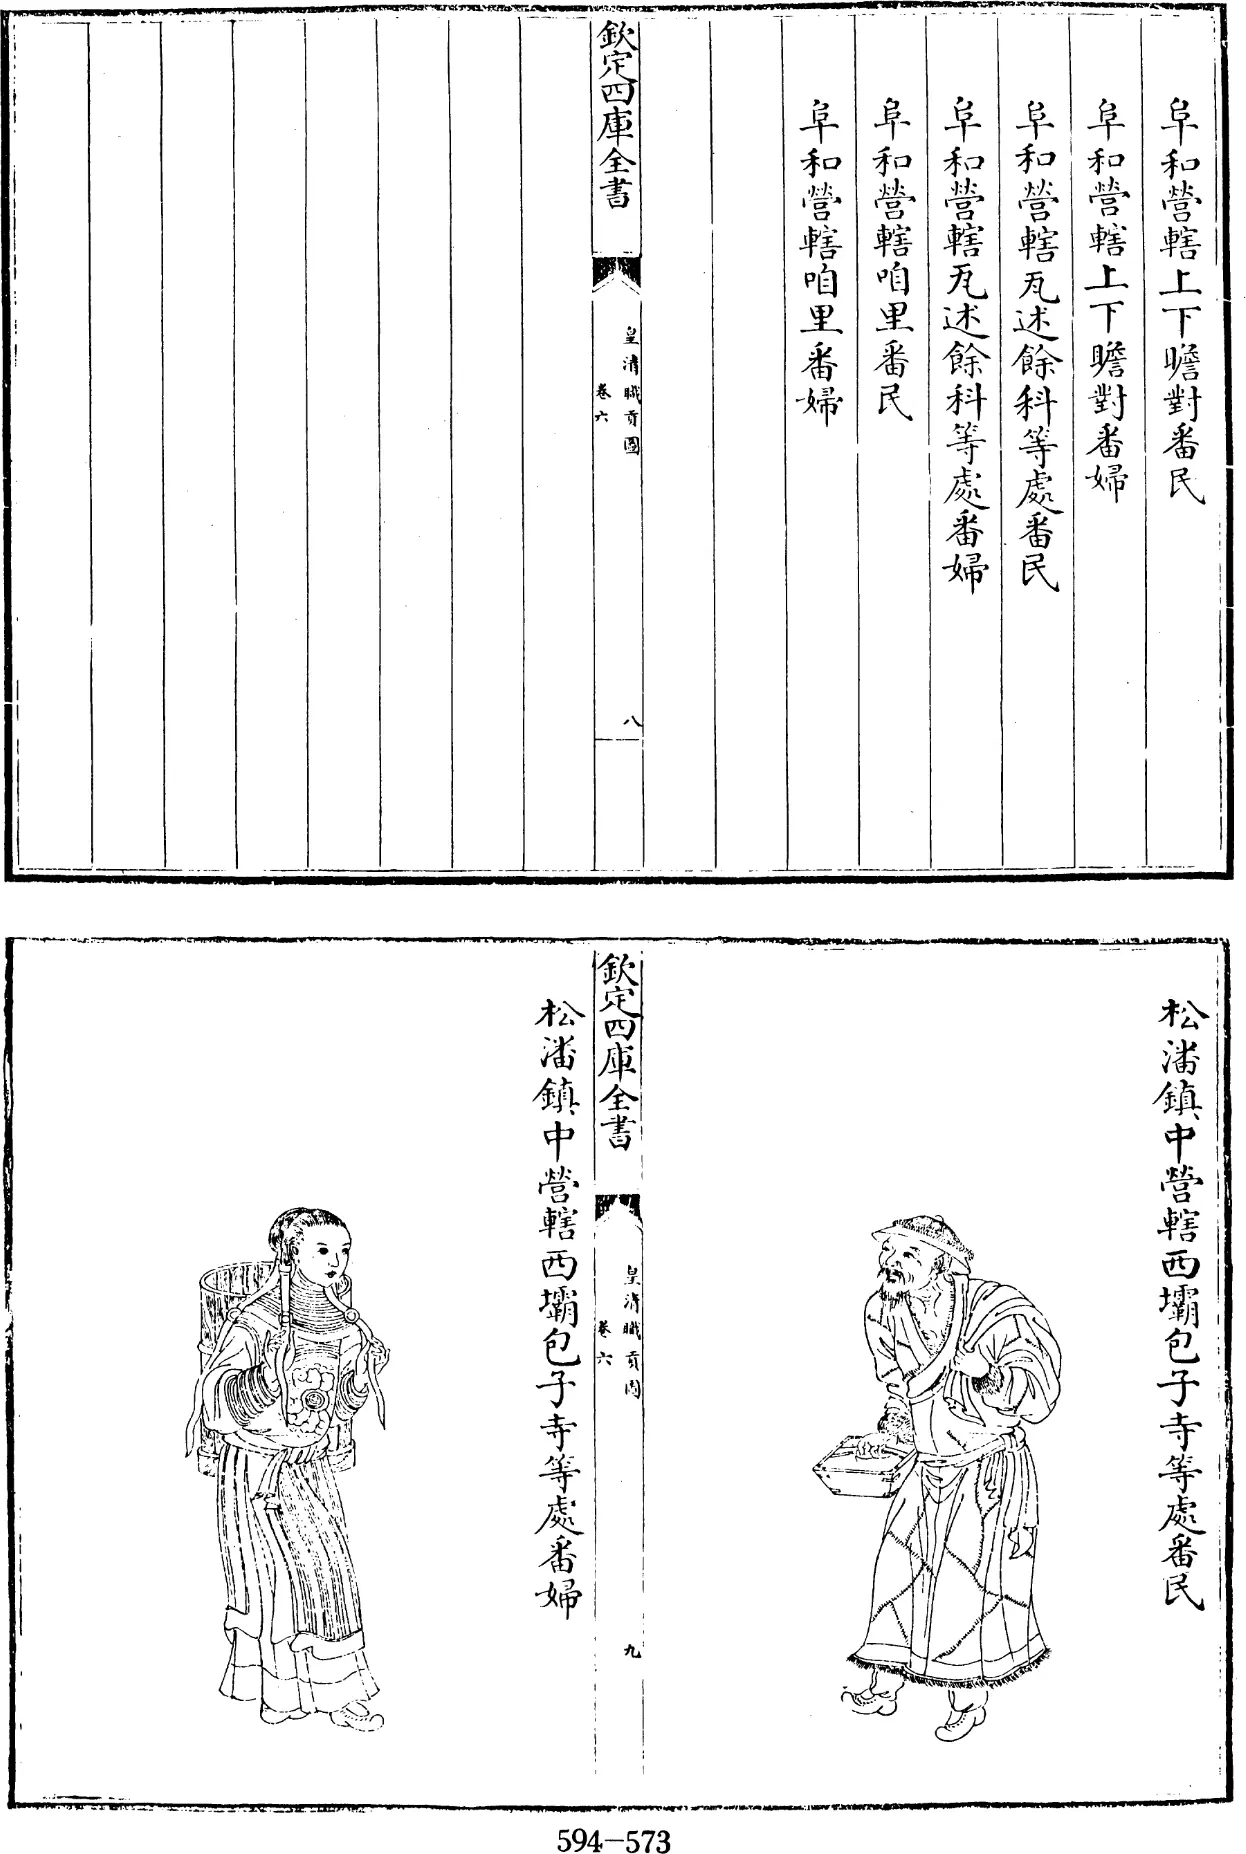 阜和營轄上下瞻對番民
阜和營轄上下瞻對番婦
阜和營轄瓦述餘科等處番民
阜和營轄瓦述餘科等處番婦
阜和營轄咱里番民
阜和營轄咱里番婦
欽定四庫全書
皇清職貢圖
卷六
八
松潘鎮中營轄西壩包子寺等處番民
欽定四庫全書
皇清職貢圖
卷六
九
松潘鎮中營轄西壩包子寺等處番婦
594-573